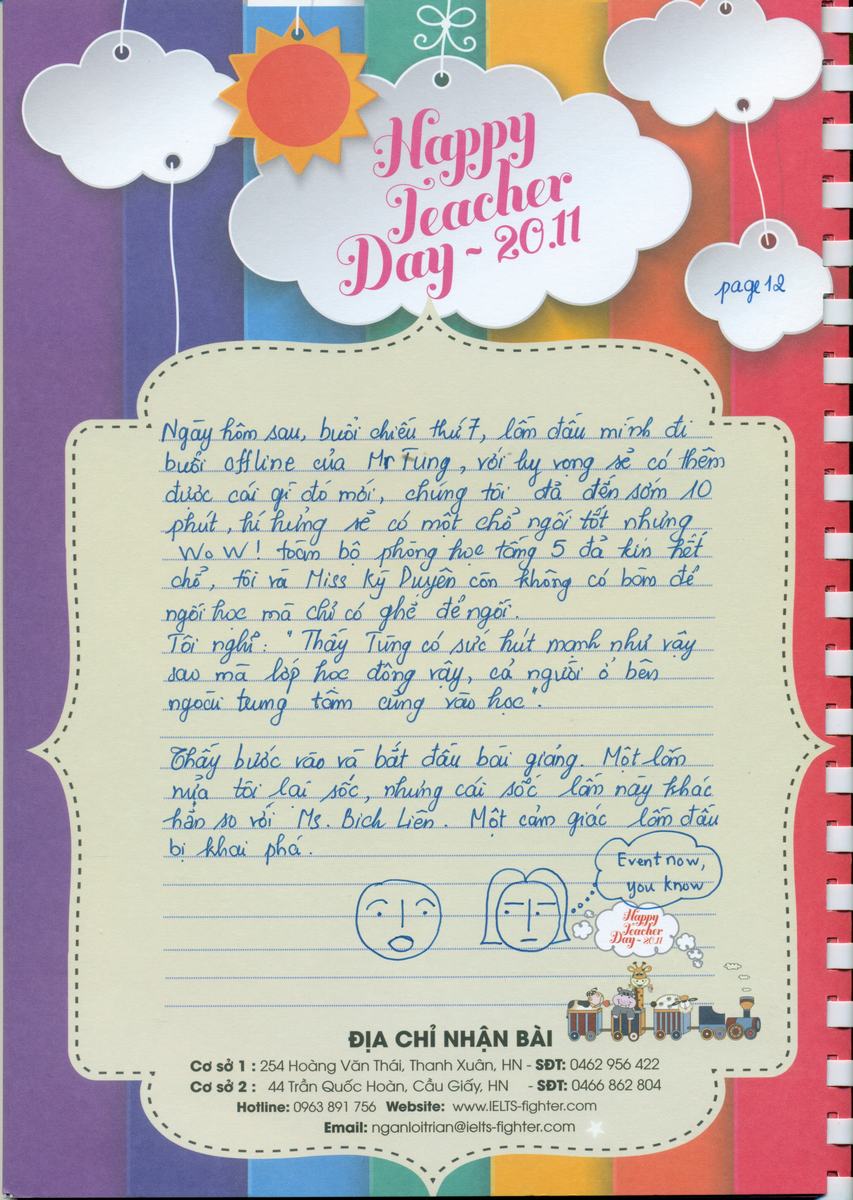 Happy
Teacher
Day - 20.11
page 12
Ngày hôm sau, buổi chiều thứ 7, lần đầu mình đi
buổi offline của Mr Tùng, với hy vọng sẽ có thêm
được cái gì đó mới, chúng tôi đã đến sớm 10
phút, hí hửng sẽ có một chỗ ngồi tốt nhưng
WoW! toàn bộ phòng học tầng 5 đã kín hết
chỗ, tôi và Miss Kỳ Duyên còn không có bàn để
ngồi học mà chỉ có ghế để ngồi.
Tôi nghĩ: "Thầy Tùng có sức hút mạnh như vậy
sao mà lớp học đông vậy, cả người ở bên
ngoài trung tâm cũng vào học".
Thầy bước vào và bắt đầu bài giảng. Một lần
nữa tôi lại sốc, nhưng cái sốc lần này khác
hẳn so với Ms. Bích Liên. Một cảm giác lần đầu
bị khai phá.
Event now,
you know
Happy
Teacher
Day - 20.11
ĐỊA CHỈ NHẬN BÀI
Cơ sở 1 : 254 Hoàng Văn Thái, Thanh Xuân, HN - SĐT: 0462 956 422
Cơ sở 2 : 44 Trần Quốc Hoàn, Cầu Giấy, HN - SĐT: 0466 862 804
Hotline: 0963 891 756 Website: www.IELTS-fighter.com
Email: nganloitrian@ielts-fighter.com